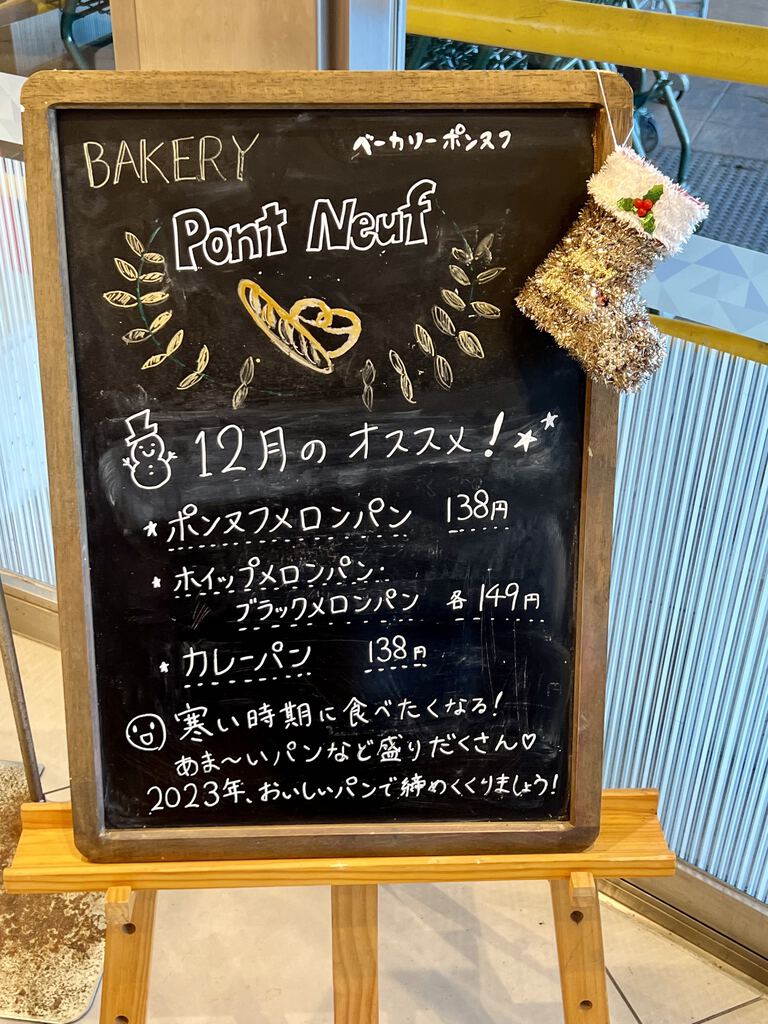 BAKERY
ベーカリーポンヌフ
Pont Neuf
12月のオススメ!
ポンヌフメロンパン 138円
ホイップメロンパン・
ブラックメロンパン 各149円
カレーパン 138円
寒い時期に食べたくなる!
あま〜いパンなど盛りだくさん♡
2023年、おいしいパンで締めくくりましょう!